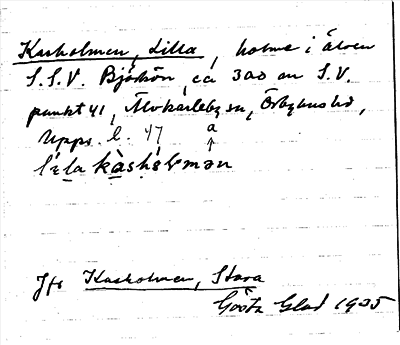 Kasholmen, Lilla, holme i älven
S.S.V. Björkön, ca 300 m S.V.
punkt 41, Älvkarleby sn, Örbyhus hd,
Upps. l. 47 a
↑
lɩla kàshòlmən
Jfr Kasholmen, Stora
Gösta Glad 1935